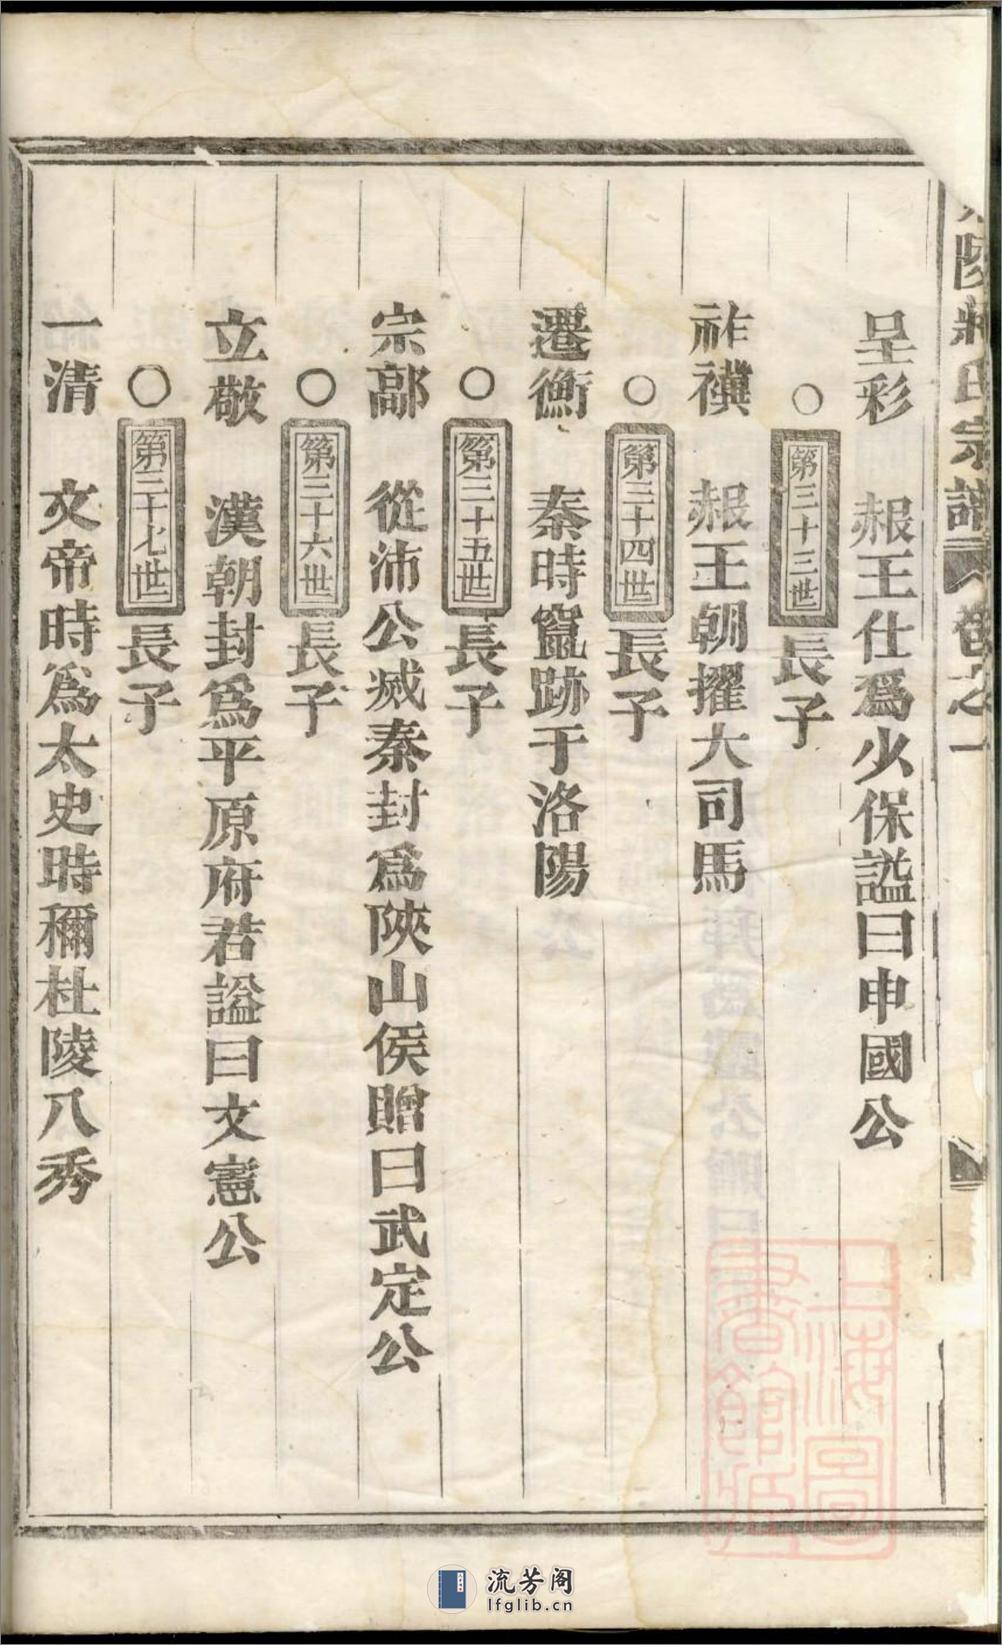 陵蔣氏宗譜 卷之一
呈彩 赧王仕爲少保謚曰申國公
○第三十三世長子
祚禩 赧王朝擢大司馬
○第三十四世長子
遷衡 秦時竄跡于洛陽
○第三十五世長子
宗鄗 從沛公滅秦封爲陜山侯贈曰武定公
○第三十六世長子
立敬 漢朝封爲平原府君謚曰文憲公
○第三十七世長子
一清 文帝時爲太史時稱杜陵八秀
上海圖書館藏
流芳阁
lfglib.cn